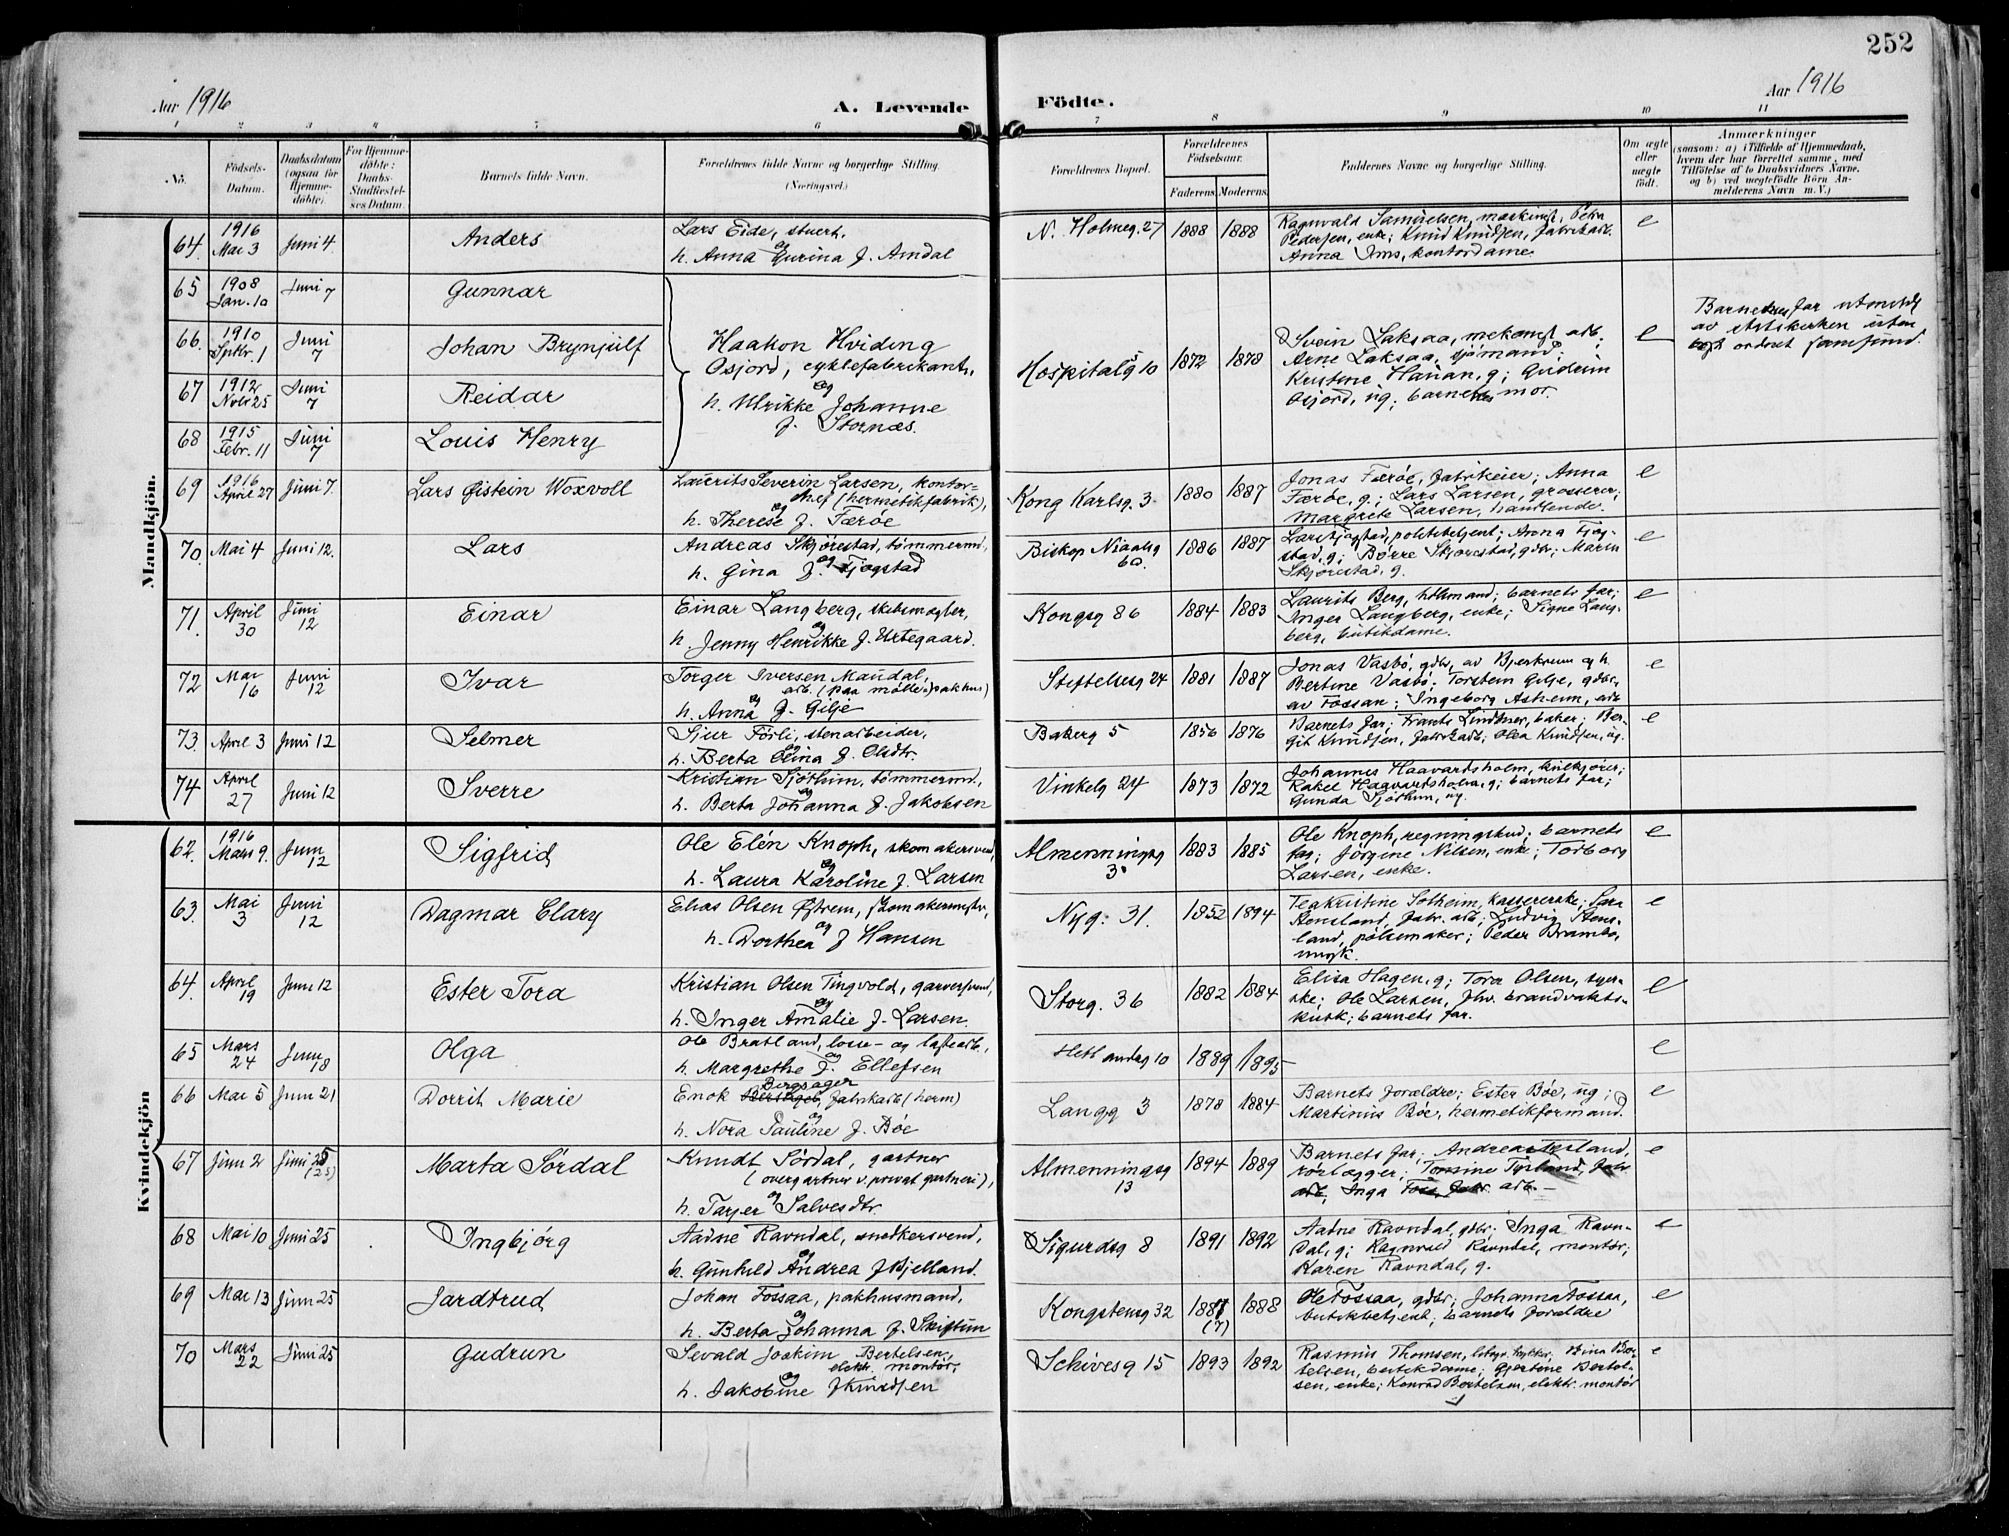 252
Aar 1916
A. Levende Födte.
Aar 1916
1 2 3 4 5 6 7 8 9 10 11
No.
Födsels-Datum.
Daabsdatum (ogsaa for Hjemme-döbte).
For Hjemme-döbte: Daabs-Stadfæstel-ses Datum.
Barnets fulde Navn.
Forældrenes fulde Navne og borgerlige Stilling. (Næringsvei.)
Forældrenes Bopæl.
Forældrenes Födselsaar.
Faderens. Moderens.
Faddernes Navne og borgerlige Stilling.
Om ægte eller uægte födt.
Anmærkninger
(saasom: a) i Tilfælde af Hjemmedaab,
hvem der har forrettet samme, med
Tilföielse af to Daabsvidners Navne,
og b) ved uægtefödte Börn An-
melderens Navn m. V.)
Mandkjön.
64. 1916 Mai 3 Juni 4 Anders
Lars Eide, stuert,
og
h. Anna Gurina f. Amdal
N. Holmeg. 27 1888 1888
Ragnvald Samuelsen, maskinist, Petra
Pedersen, enke; Knud Knudsen, fabrikarb.
Anna Ims, kontordame.
e
65 1908 Jan. 10 Juni 7 Gunnar
66. 1910 Juni 7 Johan Brynjulf
67 1912 Novbr 25 Juni 7 Reidar
68 1915 Febr. 11 Juni 7 Louis Henry
Haakon Hviding
Osjord, cyklefabrikant,
og
h. Ulrikke Johanne
f. Stornæs.
Hospitalsg 10 1872 1878
Svein Laksaa, mekanist arb.;
Arne Laksaa, sjömand;
Kristine Hauan, g; Gudrun
Osjord, ug; barnets mor.
e
Barnenes far utmeldt
av statskirken uten
ordnet samfund.
69 1916 April 27 Juni 7. Lars Øistein Woxvoll
Laurits Severin Larsen, kontor=
chef (hermetikfabrik),
og
h. Therese f. Færöe
Kong Karlsg. 3. 1880 1887
Jonas Færöe, fabrikeier; Anna
Færöe, g; Lars Larsen, grosserer;
Margrete Larsen, handlende.
e
70. Mai 4 Juni 12. Lars
Andreas Skjörestad, tömmermd,
og
h. Gina f. Fjogstad
Biskop Nialsg 6a. 1886 1887
Lars Fjogstad, politibetjent; Anna Fjog-
stad, g; Börre Skjörestad, gdbr; Maren
Skjörestad, g.
e
71. April 30 Juni 12 Einar
Einar Langberg, skibsmægler,
og
h. Jenny Henrikke f. Urtegaard.
Kongsg 86 1884 1883
Laurits Berg, barnets far;
Inger Langberg, enke; Signe Lang-
berg, butikdame.
e
72 Mai 16 Juni 12 Ivar
Torger Iversen Maudal,
arb. (paa mölle pakhus)
og
h. Anna f. Gilje
Stiftelsesg 24 1881 1887
Jonas Vasbö, gdbr, av Bjerkreim og h.
Bertine Vasbö; Torstein Gilje, gdbr,
av Fossan; Ingeborg Asheim, arb
e
73. April 3 Juni 12 Selmer
Sjur Förli, stenarbeider,
og
h. Berta Elina f. Olsdtr.
Bakerg 5 1856 1876
Barnets far; Frants Lindtner, baker; Ber-
git Knudsen, fabrikarb; Olea Knudsen, ug.
e
74 April 27 Juni 12 Sverre
Kristian Sjöthun, tömmermd,
og
h. Berta Johanna f. Jakobsen
Vinkelg 24 1873 1872
Johannes Haavardsholm,
Rakel Haavardsholm, g; barnets far;
Gunda Sjöthun, ug.
Kvindekjön
62. 1916 Mars 9. Juni 12 Sigfrid
Ole Elén Knoph, skomakersvend,
og
h. Laura Karoline f. Larsen
Almenningsg 3. 1883 1885
Ole Knoph, regningsbud; barnets
far; Jörgine Nilsen, enke; Torborg
Larsen, enke.
e
63. Mai 3 Juni 12 Dagmar Clary
Elias Olsen Østrem, skomakermester,
og
h. Dorthea f Hansen
Nyg. 31. 1852 1894
Tea Kristine Solheim, kassererske; Sara
Stensland, fabr. arb; Ludvig Stens-
land, pölsemaker; Peder Brambo,
e
64. April 19 Juni 12 Ester Tora
Kristian Olsen Tingvold, garversvend,
og
h. Inger Amalie f. Larsen.
Storg. 36 1882 1884
Elisa Hagen, g; Tora Olsen, syer-
ske; Ole Larsen, fhv. brandvakts-
kusk; barnets far.
e
65 Mars 24 Juni 18 Olga
Ole Bratland, losse- og lastearb.,
og
h. Margrethe f. Ellefsen
Hetlandsg 10 1889 1895
e
66 Mai 5 Juni 21 Dorrit Marie
Enok Bergsager, fabrikarb (herm)
og
h. Nora Pauline f. Böe
Langg 3 1878 1884
Barnets forældre; Ester Böe, ug;
Martinius Böe, hermetikformand.
e
67 Juni 2 Juni 25 (25) Marta Sördal
Knudt Sördal, gartner
(overgartner v. privat gartneri),
og
h. Tarjer Salvesdtr.
Almenningsg 13 1894 1889
Barnets far; Andreas
rörlægger; Fabr.
arb, Inga arb.
e
68 Mai 10 Juni 25 Ingbjörg
Aadne Ravndal, snedkersvend,
og
h. Gunhild Andrea f Kjelland.
Sigurdsg 8 1891 1892
Aadne Ravndal, gdbr; Inga Ravn-
dal, g; Ragnvald Ravndal, montör;
Karen Ravndal, g.
e
69 Mai 13 Juni 25 Jardtrud
Johan Fossaa, pakhusmand,
og
h. Berta Johanna f. Skiftun
Kongstensg 32 1887 (7) 1888
Ole Fossaa, gdbr; Johanna Fossaa,
butikbetjent; barnets forældre
e
70 Mars 22 Juni 25 Gudrun
Sevald Joakim Bertelsen,
elektr. montör,
og
h. Jakobine f Knudsen
Schivesg 15 1893 1892
Rasmus Thomsen, Bina Ber-
telsen, butikdame; Gjertine Bertel-
sen, enke; Konrad Bertelsen, elektr. montör
e